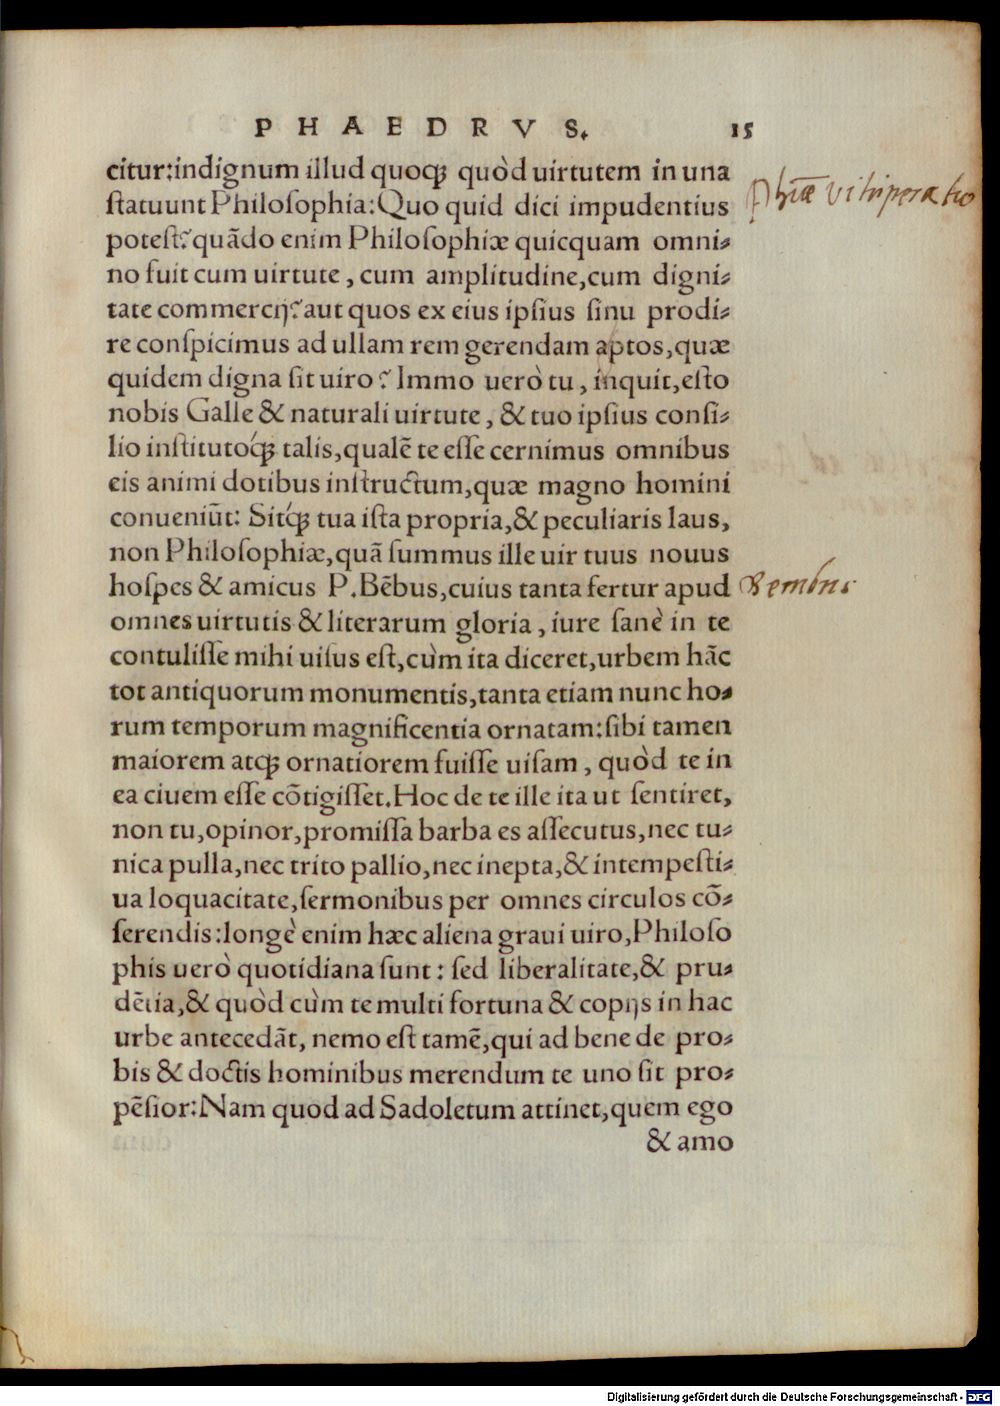 PHAEDRVS. 15
citur: indignum illud quoqꝫ quòd uirtutem in una
ſtatuunt Philoſophia: Quo quid dici impudentius
poteſt? quādo enim Philoſophiæ quicquam omni-
no fuit cum uirtute, cum amplitudine, cum digni-
tate commercij? aut quos ex eius ipſius ſinu prodi-
re conſpicimus ad ullam rem gerendam aptos, quæ
quidem digna ſit uiro? Immo uerò tu, inquit, eſto
nobis Galle & naturali uirtute, & tuo ipſius conſi-
lio inſtitutoq́ꝫ talis, qualē te eſſe cernimus omnibus
eis animi dotibus inſtructum, quæ magno homini
conueniūt: Sitq́ꝫ tua iſta propria, & peculiaris laus,
non Philoſophiæ, quā ſummus ille uir tuus nouus
hoſpes & amicus P. Bēbus, cuius tanta fertur apud
omnes uirtutis & literarum gloria, iure ſanè in te
contuliſſe mihi uiſus eſt, cùm ita diceret, urbem hāc
tot antiquorum monumentis, tanta etiam nunc ho-
rum temporum magnificentia ornatam: ſibi tamen
maiorem atqꝫ ornatiorem fuiſſe uiſam, quòd te in
ea ciuem eſſe cōtigiſſet. Hoc de te ille ita ut ſentiret,
non tu, opinor, promiſſa barba es aſſecutus, nec tu-
nica pulla, nec trito pallio, nec inepta, & intempeſti-
ua loquacitate, ſermonibus per omnes circulos cō-
ſerendis: longè enim hæc aliena graui uiro, Philoſo
phis uerò quotidiana ſunt: ſed liberalitate, & pru-
dētia, & quòd cùm te multi fortuna & copijs in hac
urbe antecedāt, nemo eſt tamē, qui ad bene de pro-
bis & doctis hominibus merendum te uno ſit pro-
pēſior: Nam quod ad Sadoletum attinet, quem ego
& amo
Phiæ vituperatio
Bembus
Digitalisierung gefördert durch die Deutsche Forschungsgemeinschaft - DFG